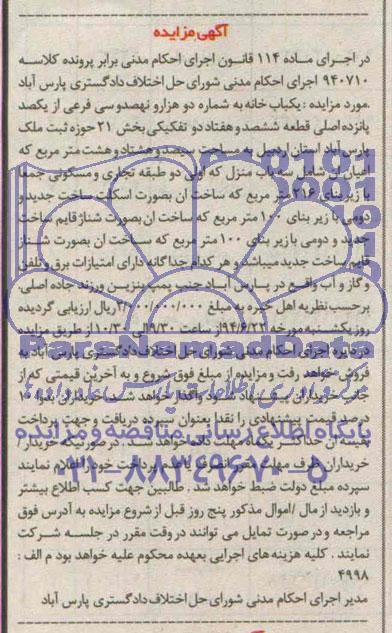 آگهی مزایده
در اجرای ماده ۱۱۴ قانون اجرای احکام مدنی برابر پرونده کلاسه
۹۴۰۷۱۰ اجرای احکام مدنی شورای حل اختلاف دادگستری پارس آباد
.مورد مزایده : یکباب خانه به شماره دو هزارو نهصدوسی فرعی از یکصد
پانزده اصلی قطعه ششصد و هفتاد دو تفکیکی بخش ۲۱ حوزه ثبت ملک
پارس آباد استان اردبیل به مساحت سیصد و هشتاد و هشت متر مربع که
اعیان آن شامل سه باب منزل که اولی دو طبقه تجاری و مسکونی جمعا
با زیر بنای ۲۱۶ متر مربع که ساخت ان بصورت اسکلت ساخت جدید و
دومی با زیر بنای ۱۰۰ متر مربع که ساخت ان بصورت شناژ قایم ساخت
جدید و دومی با زیر بنای ۱۰۰ متر مربع که ساخت ان بصورت شناز
قایم ساخت جدید میباشد و هر کدام جداگانه دارای امتیازات برق و تلفن
و گاز و آب واقع در پارس آباد جنب پمپ بنزین ورزند جاده اصلی.
برحسب نظریه اهل خبره به مبلغ ۳/۰۰۰/۰۰۰/۰۰۰ ریال ارزیابی گردیده
روز یکشنبه مورخه ۹۴/۶/۲۲ از ساعت ۹/۳۰ الی ۱۰/۳۰ از طریق مزایده
در دایره اجرای احکام مدنی شورای حل اختلاف دادگستری پارس آباد به
فروش خواهد رفت و مزایده از مبلغ فوق شروع و به آخرین قیمتی که از
جانب خریداران پیشنهاد شود واگذار خواهد شد. خریداران بدوا ۱۰
درصد قیمت پیشنهادی را نقدا بعنوان سپرده دریافت و جهت پرداخت
بقیه آن حداکثر یکماه مهلت داده خواهد شد. در صورتیکه خریدار /
خریداران ظرف مهلت مقرر انصراف یا عدم پرداخت خود را اعلام نمایند
سپرده مبلغ دولت ضبط خواهد شد . طالبین جهت کسب اطلاع بیشتر
و بازدید از مال /اموال مذکور پنج روز قبل از شروع مزایده به آدرس فوق
مراجعه و در صورت تمایل می توانند در وقت مقرر در جلسه شرکت
نمایند . کلیه هزینه های اجرایی بعهده محکوم علیه خواهد بود م الف :
۴۹۹۸
مدیر اجرای احکام مدنی شورای حل اختلاف دادگستری پارس آباد
ParsNamadData
پایگاه اطلاع رسانی مناقصه و مزایده
۰۲۱-۸۸۳۴۹۶۷۰-۵